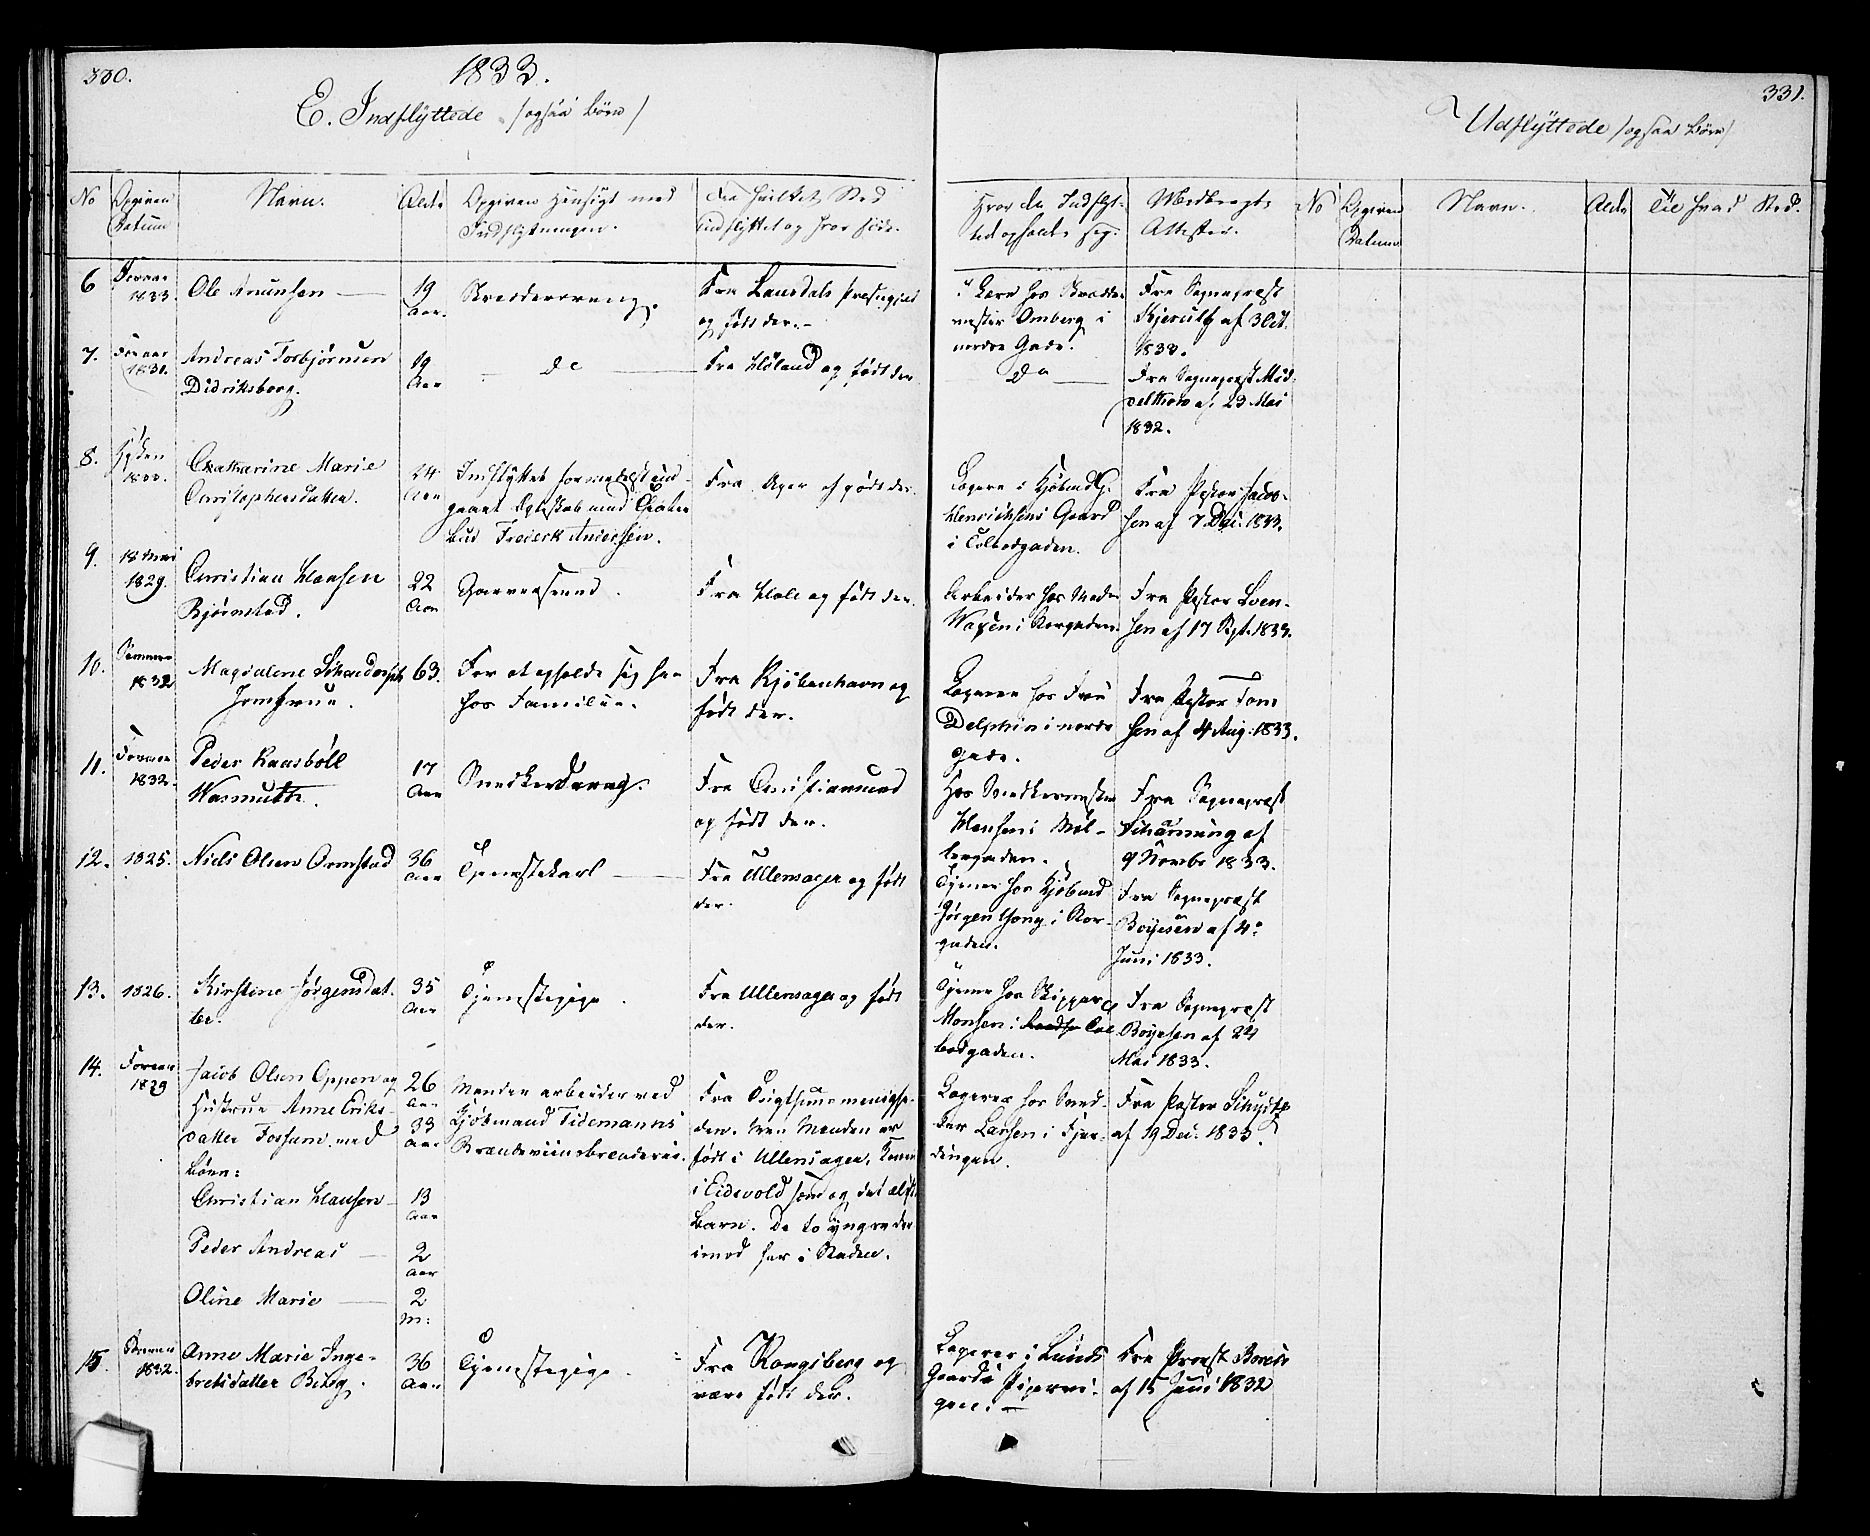 330.
1833.
E. Indflyttede /ogsaa Børn/
No
Opgiven Datum
Navn.
Alder
Opgiven Hensigt med Indflytningen.
Fra hvilket Sted indflyttet og hvor født.
Hvor de Indflyttede opholde sig.
Medbragte Attester.
6
Foraar 1833.
Ole Amunsen
19 Aar.
Skrædersvend.
og født der.
i Lære hos Skrædermester Omberg i nordre Gade.
Fra Sognepræst Kjerulf af 3 Oct. 1833.
7.
Foraar 1831.
Andreas Torbjørnsen Didriksborg.
19 Aar
do
Fra Høland og født der
do
Fra Sognepræst
af 23 Mai 1832.
8.
1833.
Chatharine Marie Christophersdatter.
24 Aar
Indflyttet formedelst indgaaet Egteskab med
Frederik Andersen.
Fra Ager og født der.
Logere i Kjøbmd
Henrichsens Gaard i Tolbodgaden.
Fra Pastor Jacobsen af 7 Dec. 1833.
9.
18 Mai 1829.
Christian Hansen Bjørnstad.
22 Aar
Garversvend.
Fra Hole og født der.
Arbeider hos Mad.
i Storgaden.
Fra Pastor Svensen af 17 Spt. 1833.
10.
Sommer 1832
Magdalene
Jomfrue.
63.
For at opholde sig her hos Familie.
Fra Kjøbenhavn og født der.
Logerer hos Frü Delphin i nordre Gade.
Fra Pastor
af 4 Aug: 1833.
11.
Foraar 1832.
Peder Raasbøll Wasmuth.
17 Aar
Snedkerdreng.
Fra Christiansund og født der.
Hos Snedkermester Hansen i Møllergaden.
Fra Sognepræst
af 9 Novbr 1833.
12.
1825.
Niels Olsen Ormstad
36 Aar
Tjenestekarl
Fra Ullensager og født der.
Tjener hos Kjøbmd Jørgen Young i Storgaden.
Fra Sognepræst Boyesen af 4de Juni 1833.
13.
1826.
Kirstine Jørgensdatter.
35 Aar
Tjenestepige.
Fra Ullensager og født der.
Tjener hos Skipper Monsen i
Tolbodgaden.
Fra Sognepræst Boyesen af 24 Mai 1833.
14.
Foraar 1829
Jacob Olsen Oppen og Hustrue Anne Eriksdatter Fossum med Børn:
26 Aar
33 Aar
Manden arbeider ved Kjøbmand Tidemanns Brændeviinsbrænderie.
Fra
menighe-
den. Men Manden er født i Ullensager, Konen i Eidsvold som og det ælste Barn. De to yngre der imod her i Staden.
Logerer hos Snedker Larsen i Fjerdingen.
Fra Pastor
af 19 Dec. 1833.
Christian Hansen
13 Aar
Peder Andreas
2 Aar
Oline Marie
2 m:
15.
1832.
Anne Marie Ingebretsdatter
36 Aar
Tjenestepige.
Fra Kongsberg og være født der.
Logerer i Lunds Gaard i Pipervigen.
Fra Provst
af 15 Juni 1832
331.
Udflyttede /ogsaa Børn/
No
Opgiven Datum
Navn.
Alder
Til hvad Sted.